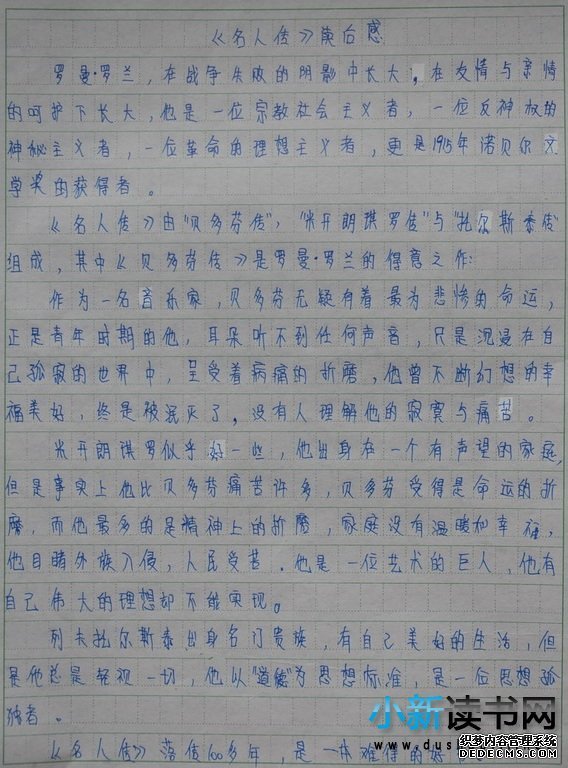 《名人传》读后感
罗曼·罗兰，在战争失败的阴影中长大，在友情与亲情
的呵护下长大，他是一位宗教社会主义者，一位反神权的
神秘主义者，一位革命的理想主义者，更是1915年诺贝尔文
学奖的获得者。
《名人传》由“贝多芬传”，“米开朗琪罗传”与“托尔斯泰传”
组成，其中《贝多芬传》是罗曼·罗兰的得意之作：
作为一名音乐家，贝多芬无疑有着最为悲惨的命运，
正是青年时期的他，耳朵听不到任何声音，只是沉浸在自
己孤寂的世界中，呈受着病痛的折磨，他曾不断幻想的幸
福美好，终是被泯灭了，没有人理解他的寂寞与痛苦。
米开朗琪罗似乎好一些，他出身在一个有声望的家庭，
但是事实上他比贝多芬痛苦许多，贝多芬受得是命运的折
磨，而他最多的是精神上的折磨，家庭没有温暖和幸福，
他目睹外族入侵，人民受苦．他是一位艺术的巨人，他有
自己伟大的理想却不能实现。
列夫托尔斯泰出身名门贵族，有自己美好的生活，但
是他总是轻视一切，他以“道德”为思想标准，是一位思想孤
独者。
《名人传》落传100多年，是一本难得的好
小新读书网
www.dus
织梦内容管理系统
DEDECMS.COM